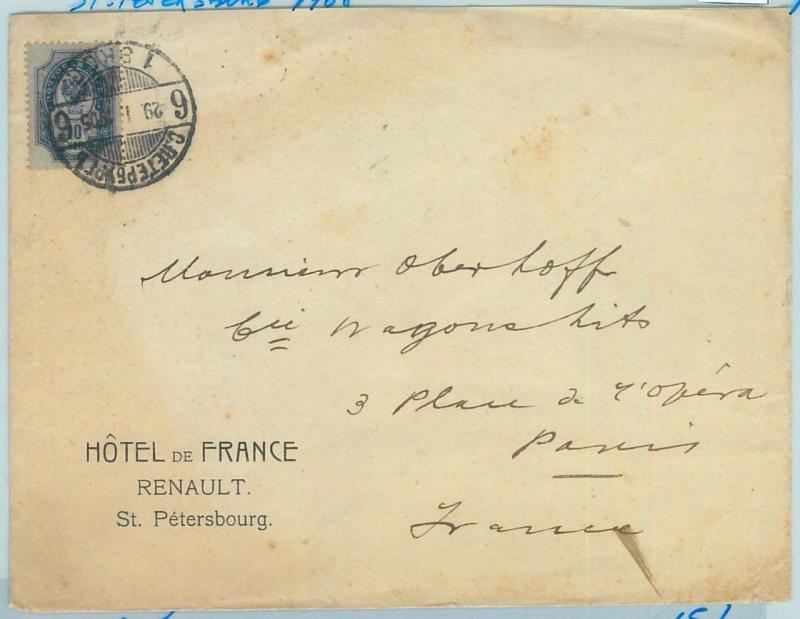 St. Petersburg 1908
С.ПЕТЕРБУРГЪ
6
6
29.
1
Monsieur Oberhoff
Cie Wagons lits
3 Place de l'Opéra
Paris
France
HÔTEL DE FRANCE
RENAULT.
St. Pétersbourg.